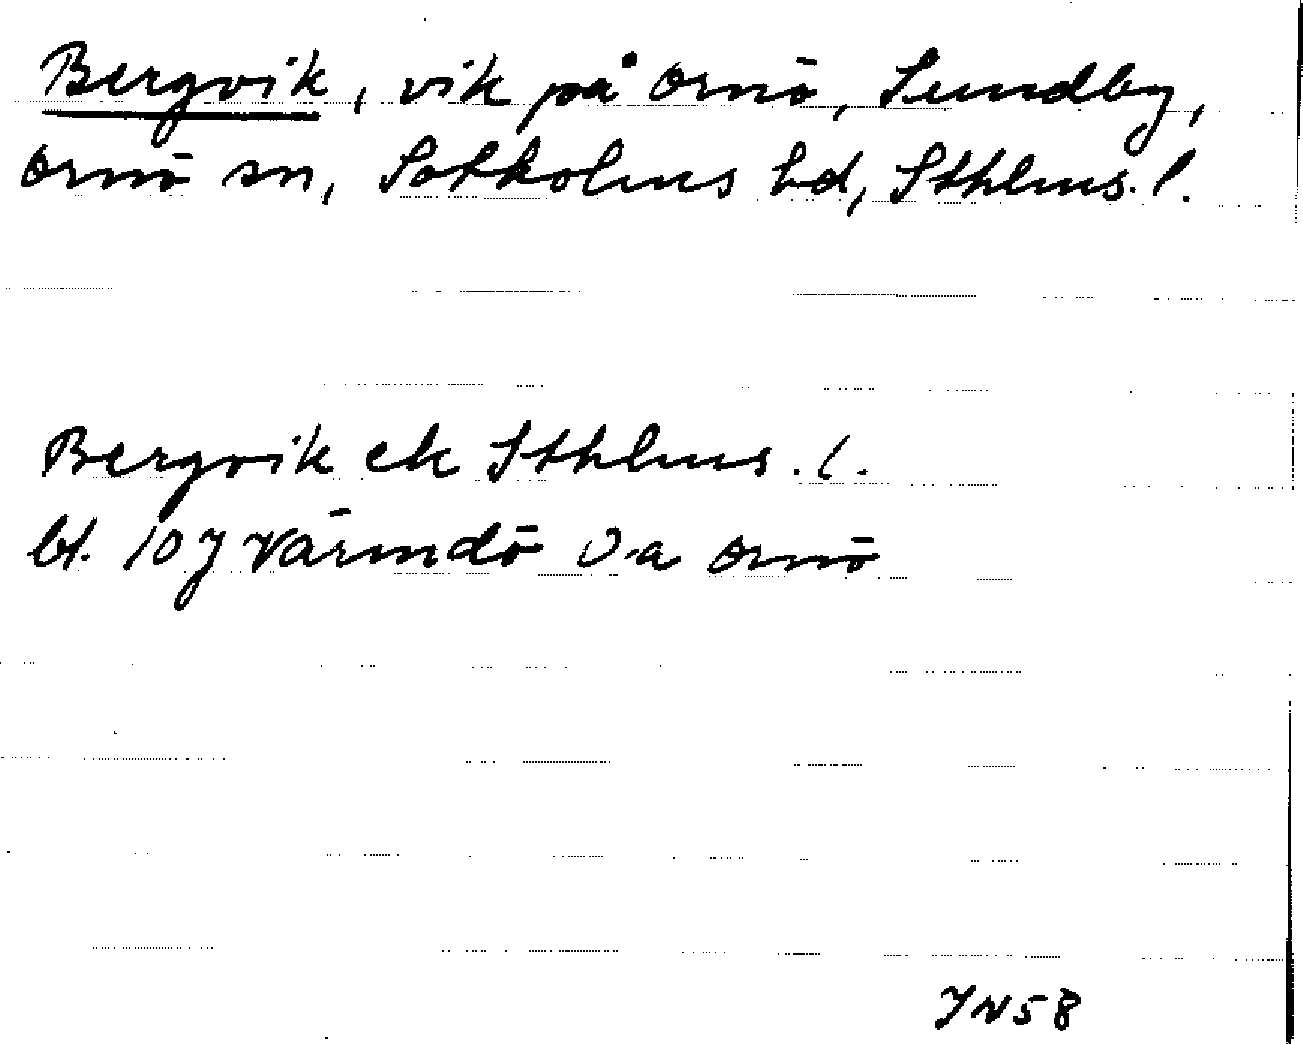 Bergvik, vik på Ornö, Sundby,
Ornö sn, Sotholms hd, Sthlms. l.
Bergvik ek Sthlms. l.
bl. 10 J Värmdö O-a Ornö
JN58